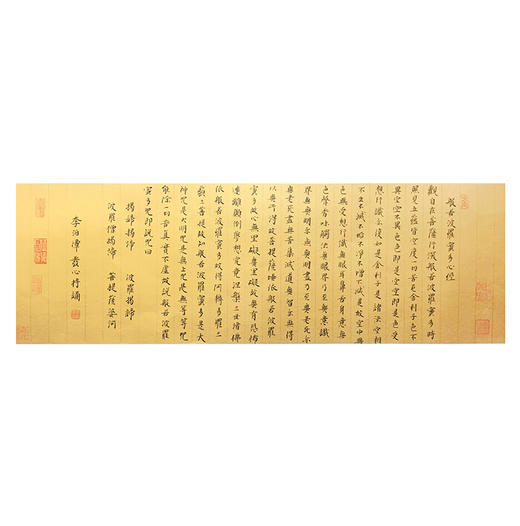 般若波羅蜜多心經
觀自在菩薩行深般若波羅蜜多時
照見五蘊皆空度一切苦厄舍利子色不
異空空不異色色即是空空即是色受
想行識亦復如是舍利子是諸法空相
不生不滅不垢不淨不增不減是故空中無
色無受想行識無眼耳鼻舌身意無
色聲香味觸法無眼界乃至無意識
界無無明亦無無明盡乃至無老死亦
無老死盡無苦集滅道無智亦無得
以無所得故菩提薩埵依般若波羅
蜜多故心無罣礙無罣礙故無有恐怖
遠離顛倒夢想究竟涅槃三世諸佛
依般若波羅蜜多故得阿耨多羅三
藐三菩提故知般若波羅蜜多是大
神咒是大明咒是無上咒是無等等咒
能除一切苦真實不虛故說般若波羅
蜜多咒即說咒曰
揭諦揭諦 波羅揭諦
波羅僧揭諦 菩提薩婆訶
李伯潭發心持誦